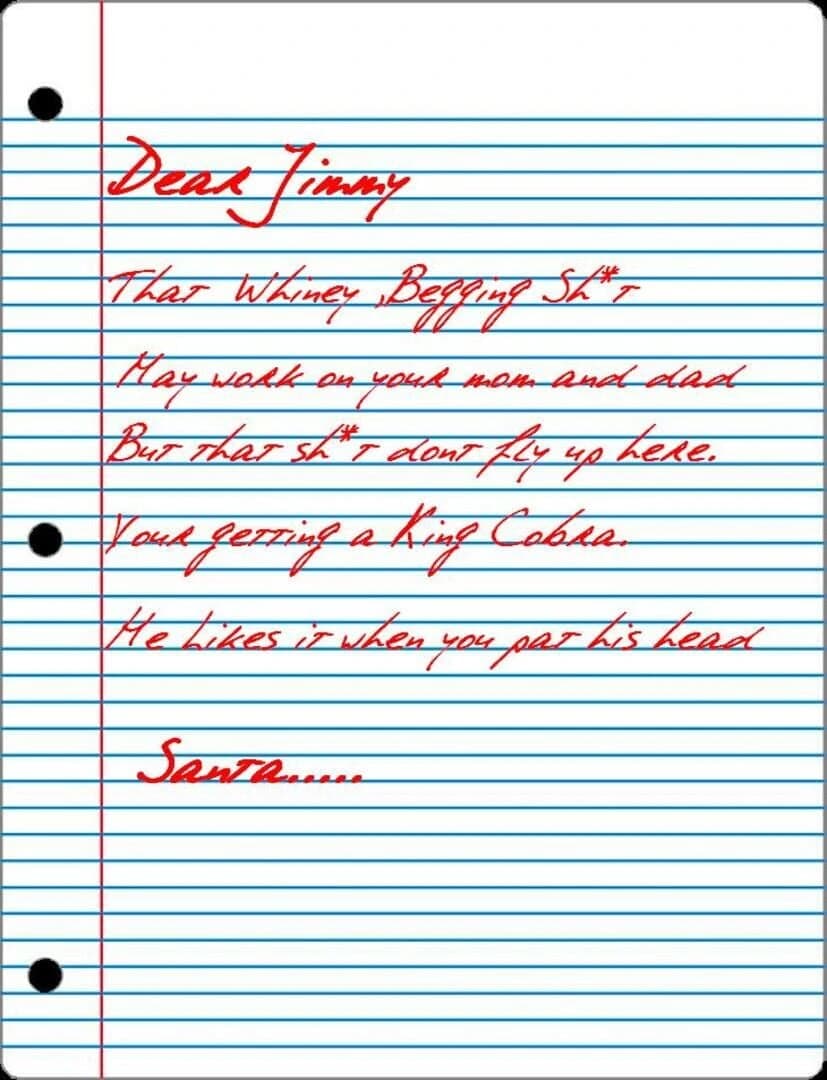 Dear Jimmy
That Whiney ,Begging Sh*t
May work on your mom and dad
But that sh*t dont fly up here.
Your getting a King Cobra.
He Likes it when you pat his head
Santa.....